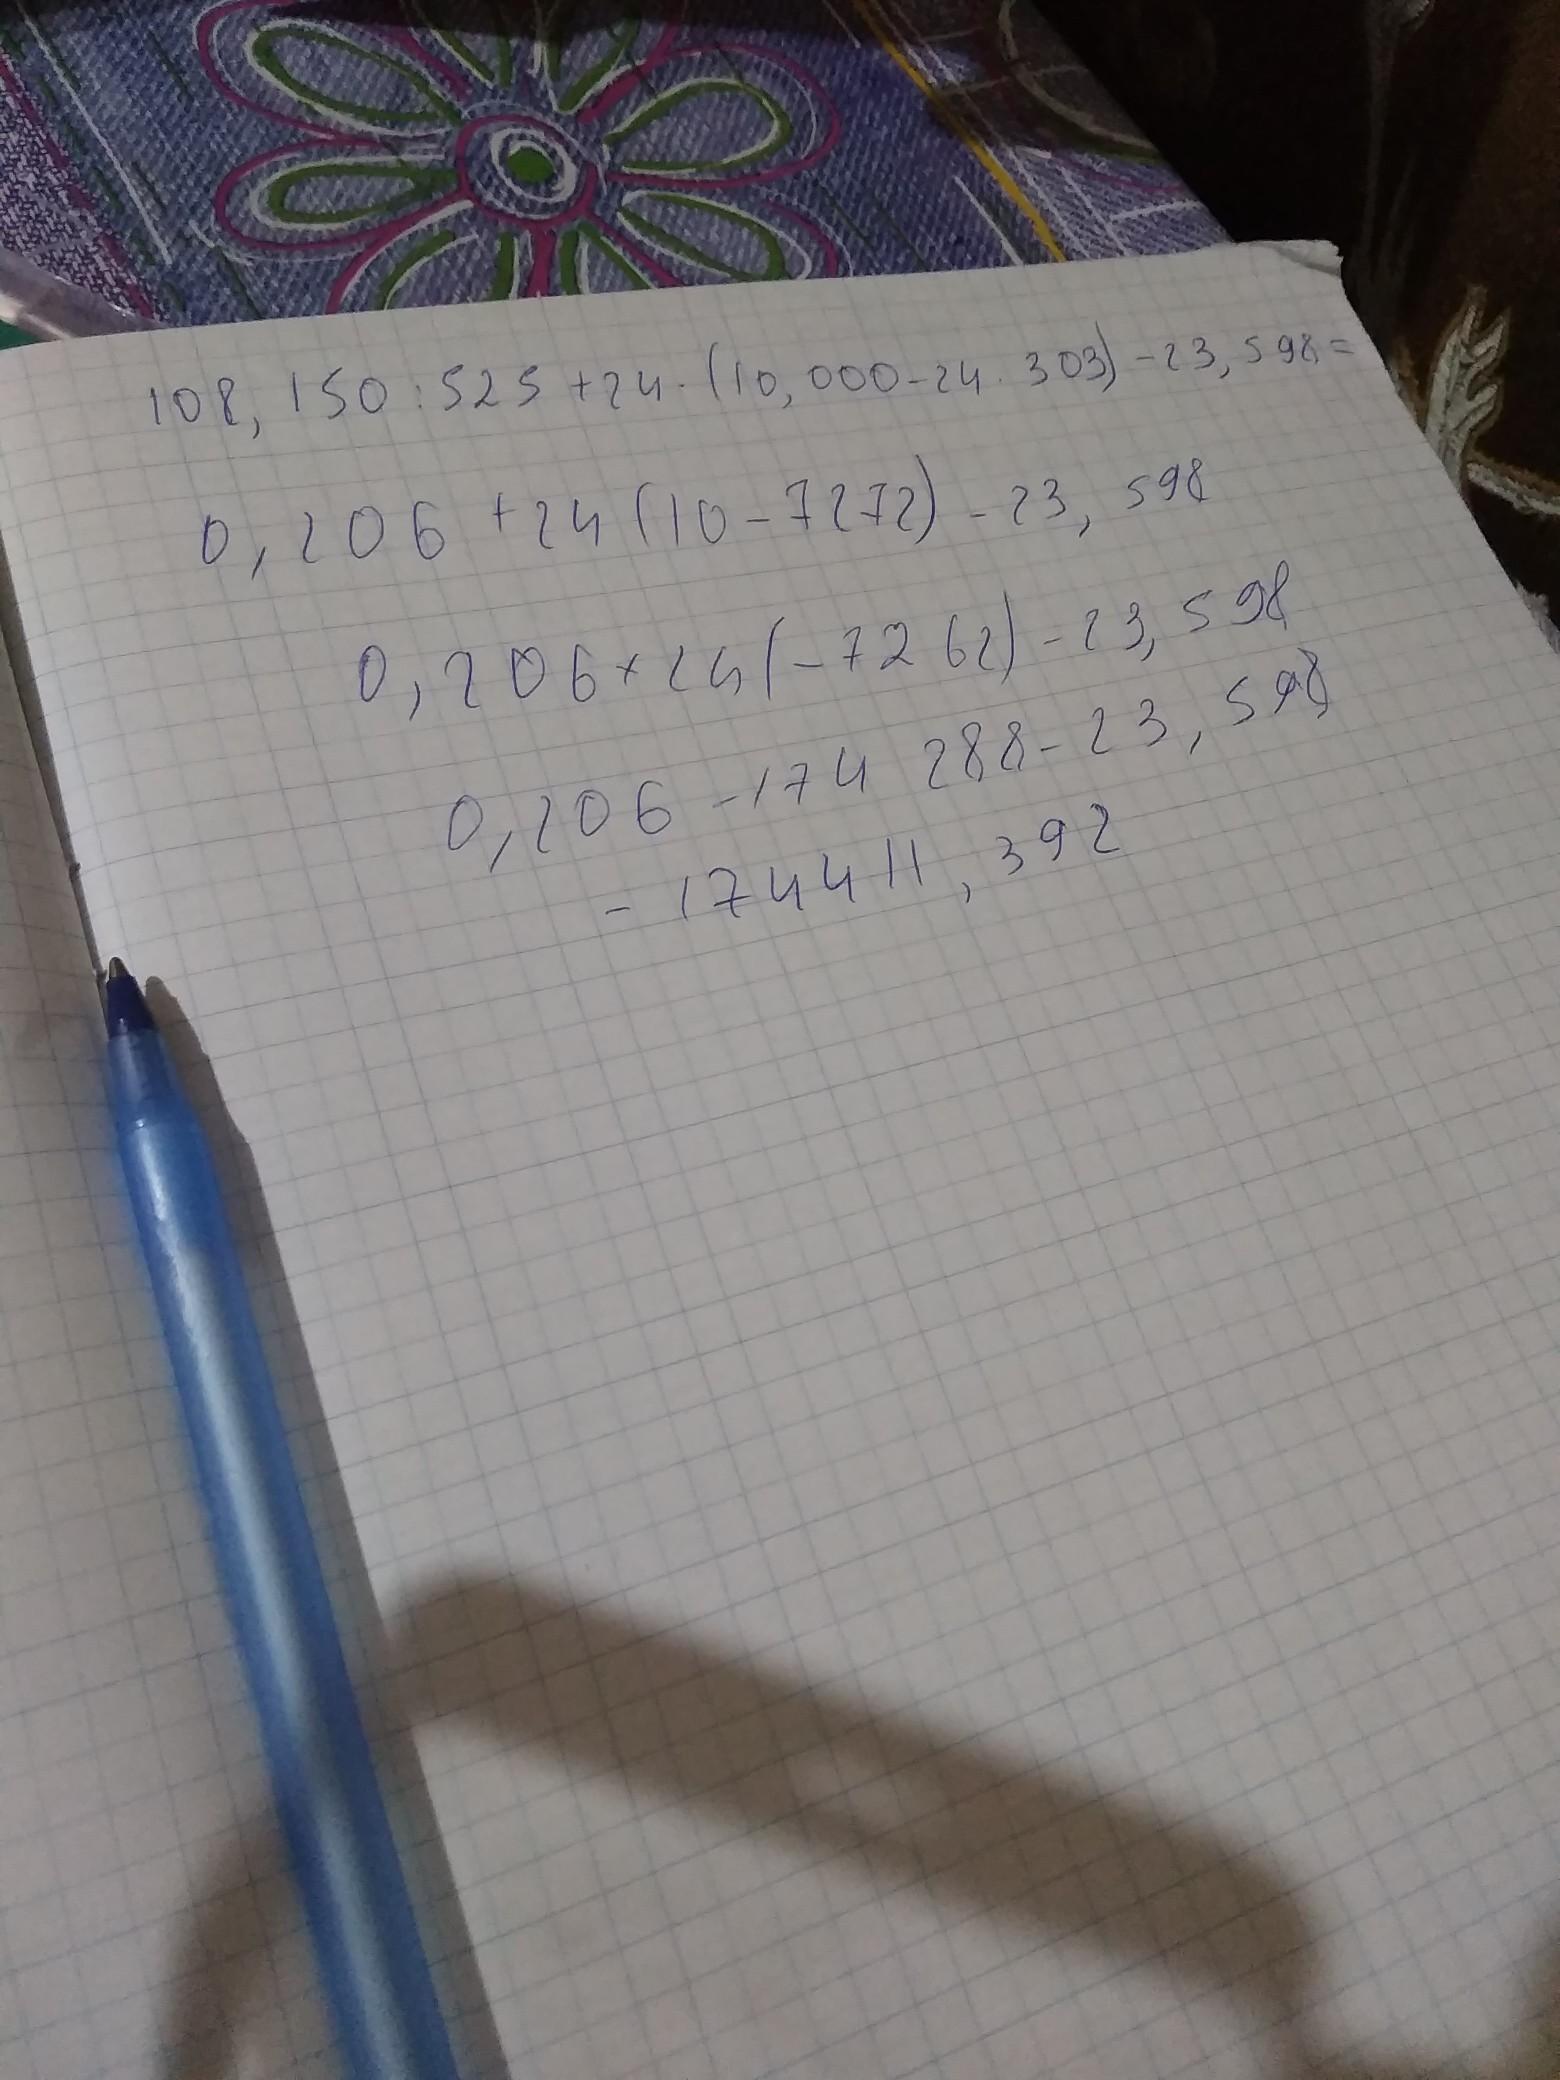 108, 150 : 525 + 24 · (10, 000 - 24 · 303) - 23, 598 =
0, 206 + 24 (10 - 7272) - 23, 598
0, 206 + 24 (- 7262) - 23, 598
0, 206 - 174 288 - 23, 598
- 174411, 392